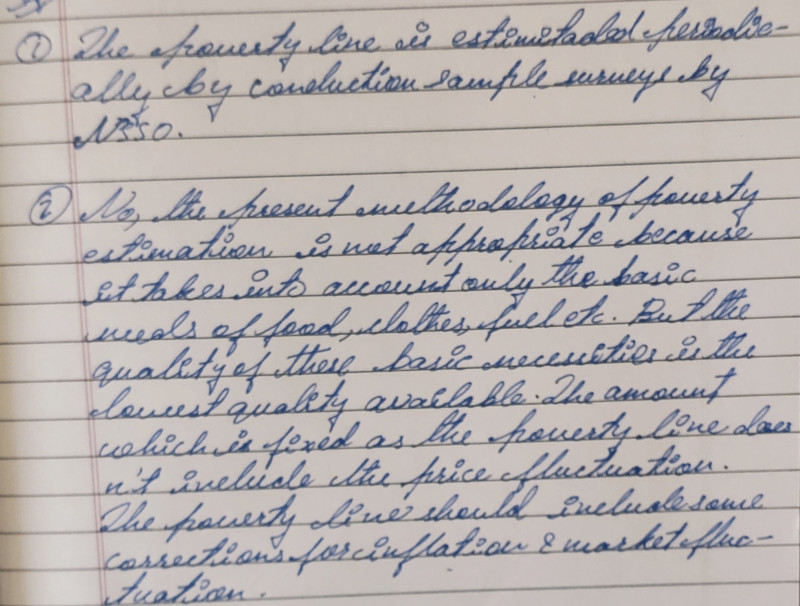 ① The poverty line is estimitaded periodic-
ally by conduction sample surveys by
NSSO.
② No, the present methodology of poverty
estimation is not appropriate because
it takes into account only the basic
needs of food, clothes, fuel etc. But the
quality of these basic necessities is the
lowest quality available. The amount
which is fixed as the poverty line does
n't include the price fluctuation.
The poverty line should include some
corrections for inflation & market fluc-
tuation.